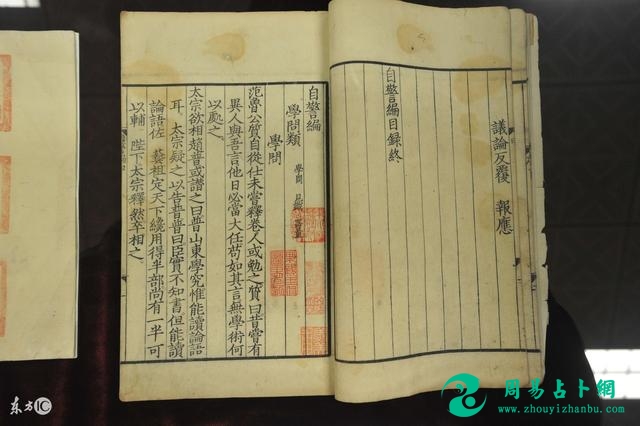 議論反覆　報應
自警編目録終
自警編
學問類　學問
學問
范魯公質自從仕未嘗釋卷人或勉之質曰昔嘗有
異人與吾言他日必當大任苟如其言無學術何
以處之
太宗欲相趙普或譖之曰普山東學究惟能讀論語
耳太宗疑之以告普普曰臣實不知書但能讀
論語佐　藝祖定天下纔用得半部尚有一半可
以輔　陛下太宗釋然卒相之
东方IC
周易占卜網
www.zhouyizhanbu.com